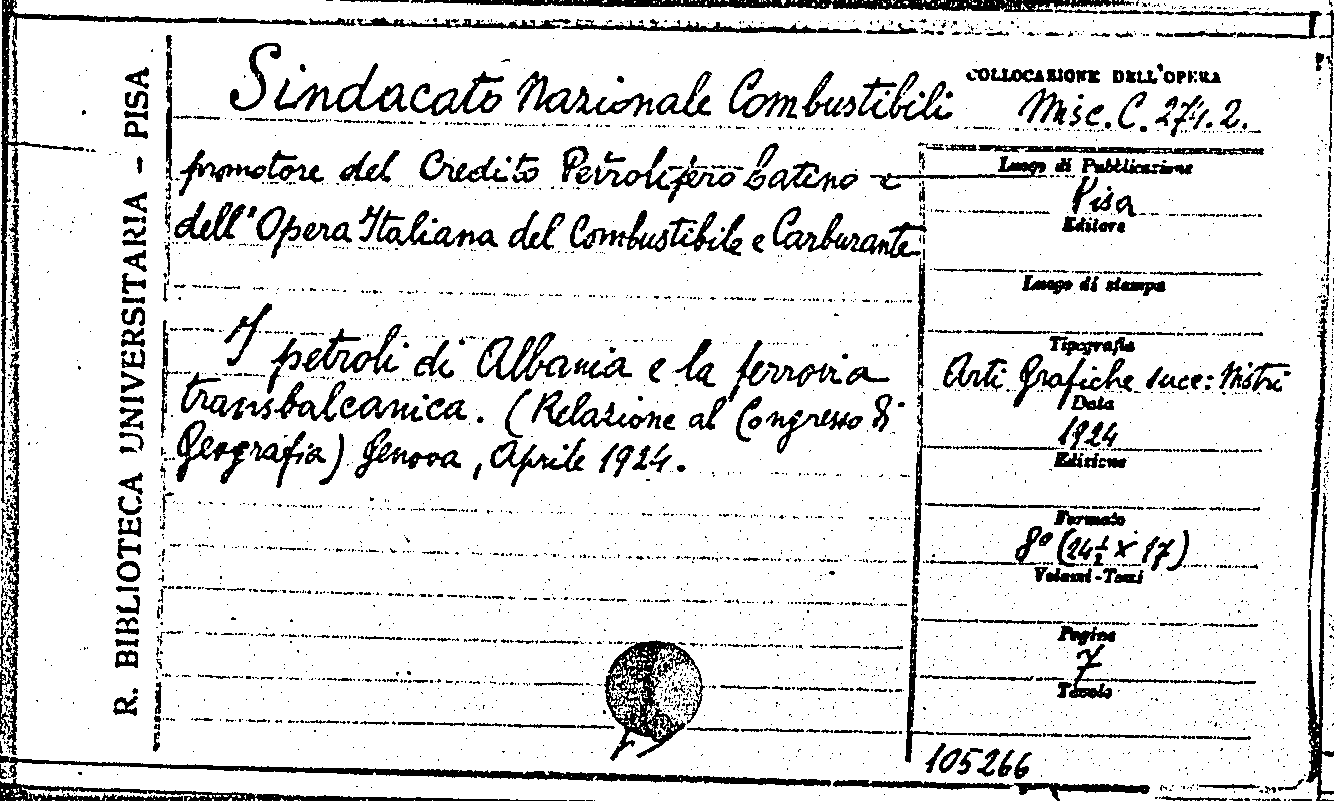 R. BIBLIOTECA UNIVERSITARIA - PISA
Sindacato Nazionale Combustibili
promotore del Credito Petrolifero Latino e
dell'Opera Italiana del Combustibile e Carburante
I petroli di Albania e la ferrovia
transbalcanica. (Relazione al Congresso di
Geografia) Genova, Aprile 1924.
COLLOCAZIONE DELL'OPERA
Misc. C. 274. 2.
Luogo di Pubblicazione
Pisa
Editore
Luogo di stampa
Tipografia
Arti Grafiche succ: Nistri
Data
1924
Edizione
Formato
8º (24½ x 17)
Volumi-Tomi
Pagine
7
Tavole
105266